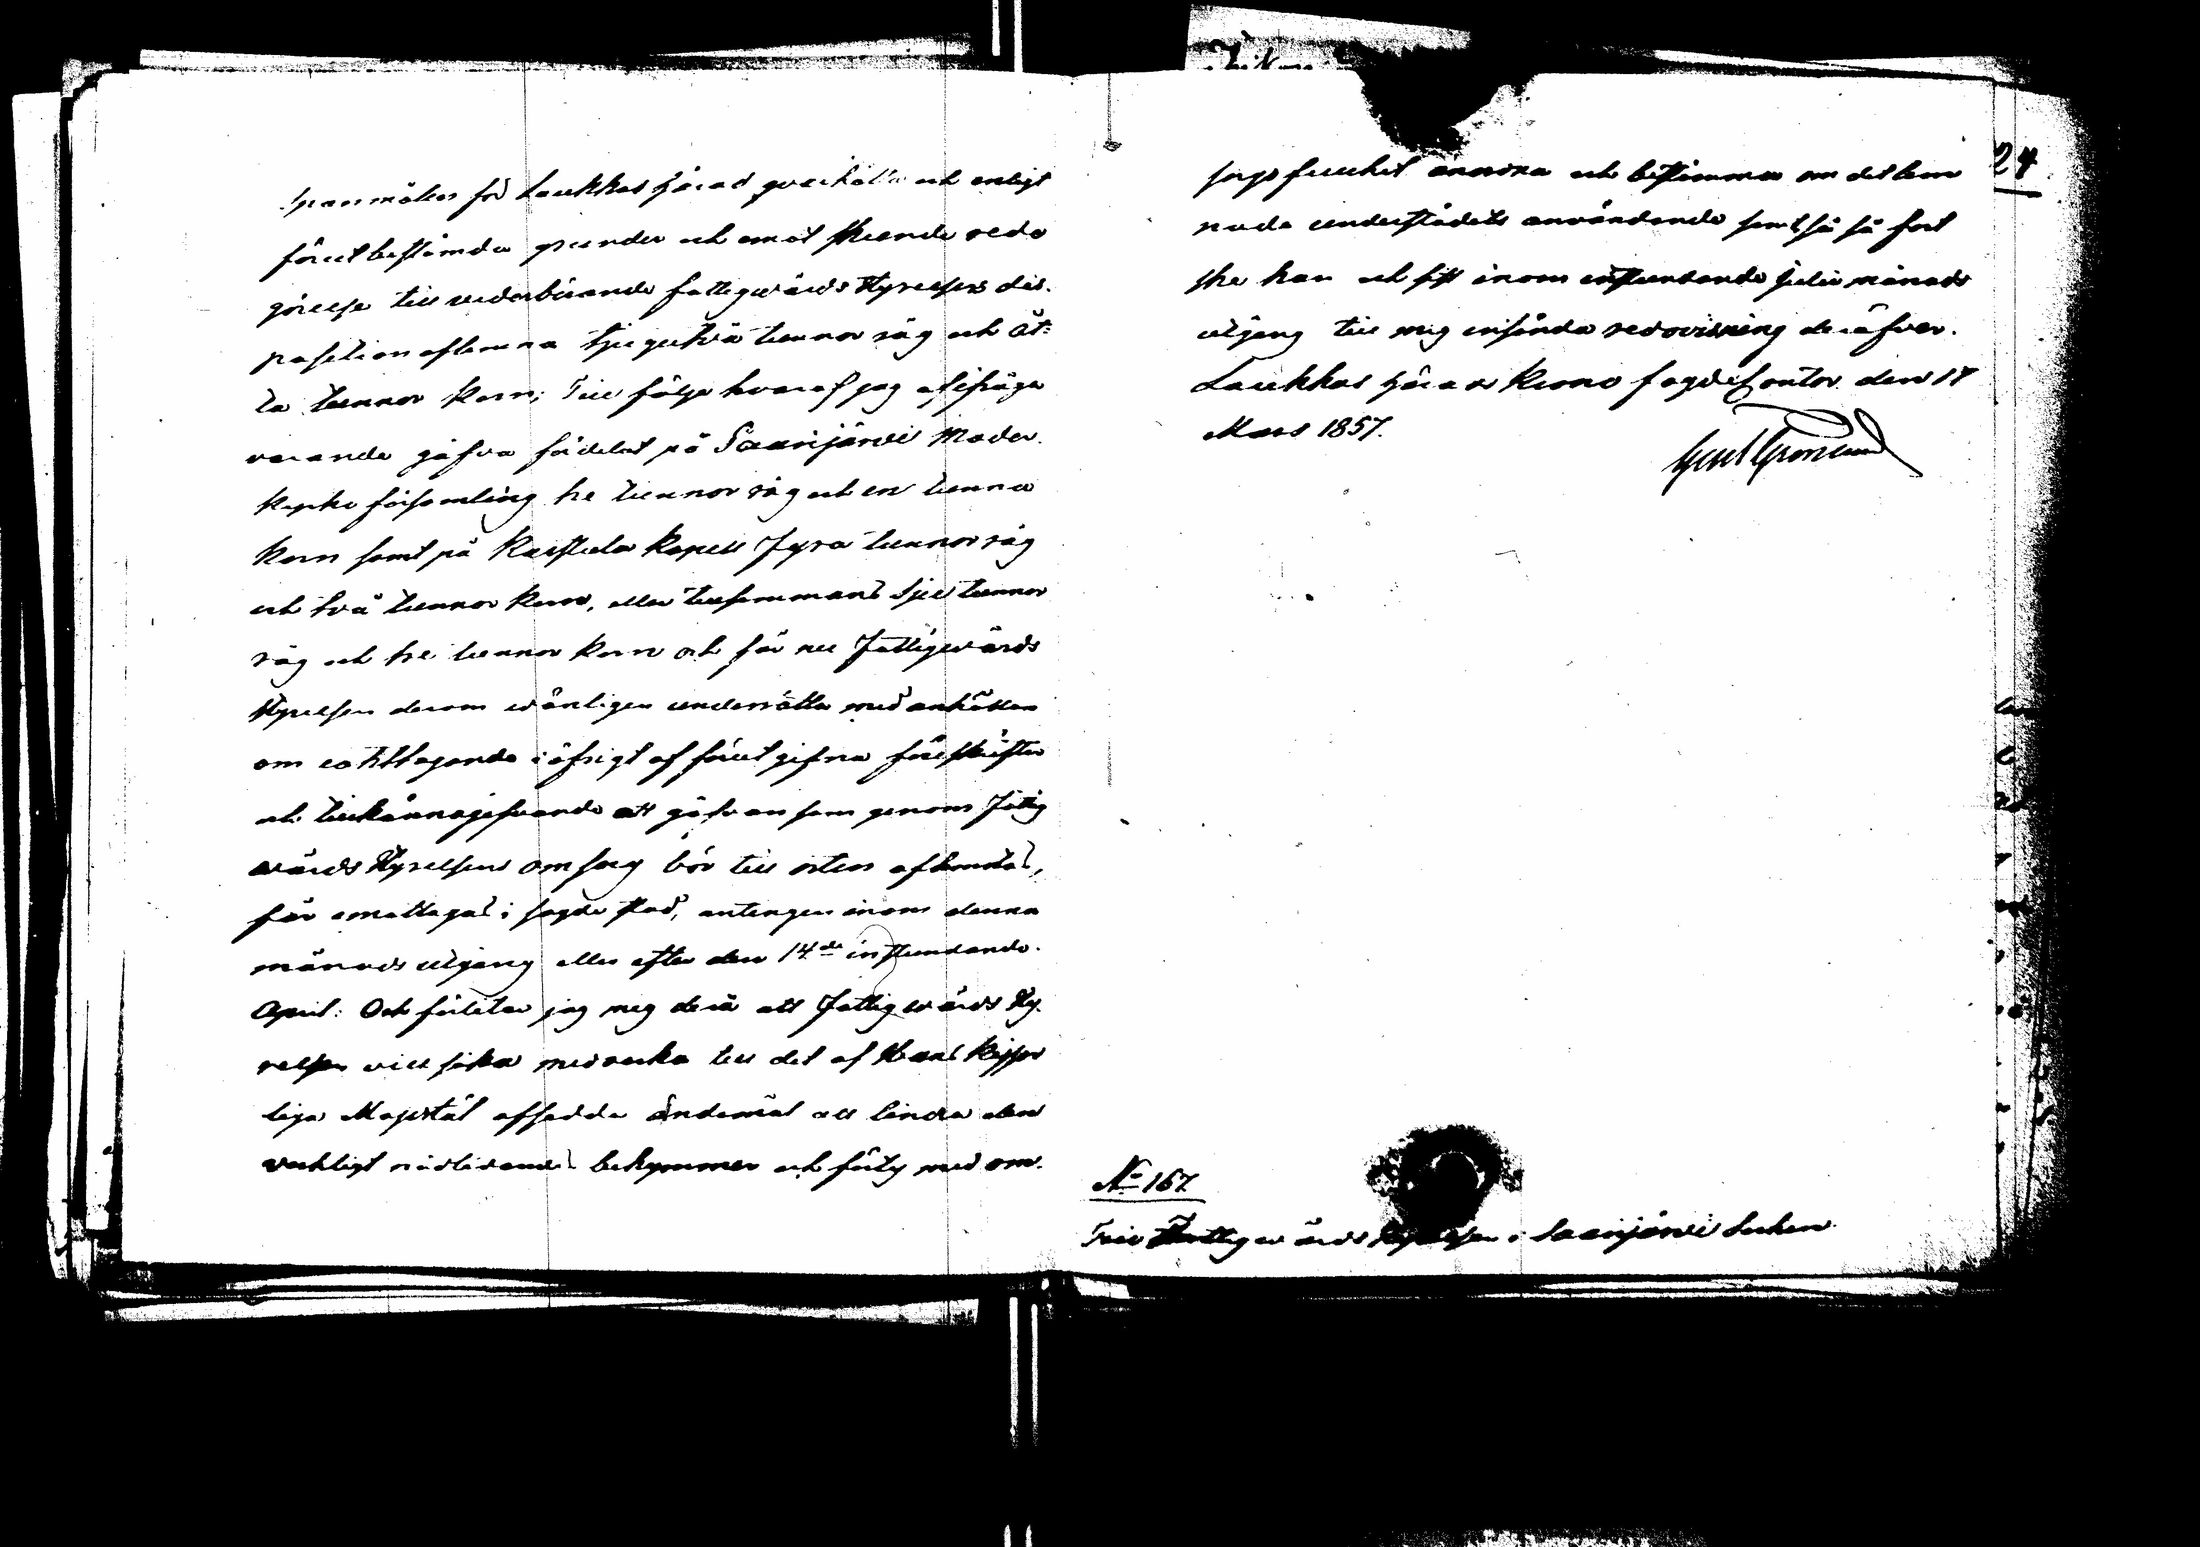 spanmålen för Laukkas härad qvarhålla och enligt
förut bestämda grunder och emot skeende redo
görelse till vederbörande fattigwårds Styrelsers dis-
position aflemna tjugutvå tunnor råg och åt-
ta tunnor korn; Till följe hvaraf jag af ifråga
varande gåfva fördelat på Saarijärvi Moder-
kyrko församling tre tunnor råg och en tunna
korn samt på Karstula Kapell fyra tunnor råg
och två tunnor korn, eller tillsammans sju tunnor
råg och tre tunnor korn och får nu Fattigwårds
Styrelsen derom wänligen underrätta med anhållan
om iakttagande i öfrigt af förut gifna föreskrifter
och tillkännagifvande att gåfvan som genom Fattig
wårds Styrelsens omsorg bör till orten afhemtas,
får emottagas i sagde stad, antingen inom denna
månads utgång eller efter den 14de instundande
April: Och förlitar jag mig derå att Fattigwårds Sty-
relsen vill söka medverka till det af Hans Kejser
liga Majestät afsedda ändamål att lindra den
verkligt nödlidandes bekymmer och förty med om-
sorgsfullhet anordna och bestämma om det lem
nade understödets användande samt så fort
ske kan och sist inom instundande Julii månads
utgång till mig insända redovisning deröfver.
Laukkas härads Krono fogde Contor den 17
Mars 1857.
Gust Grönlund
24
No 167
Till Fattigwårds Styrelsen i Saarijärvi Socken